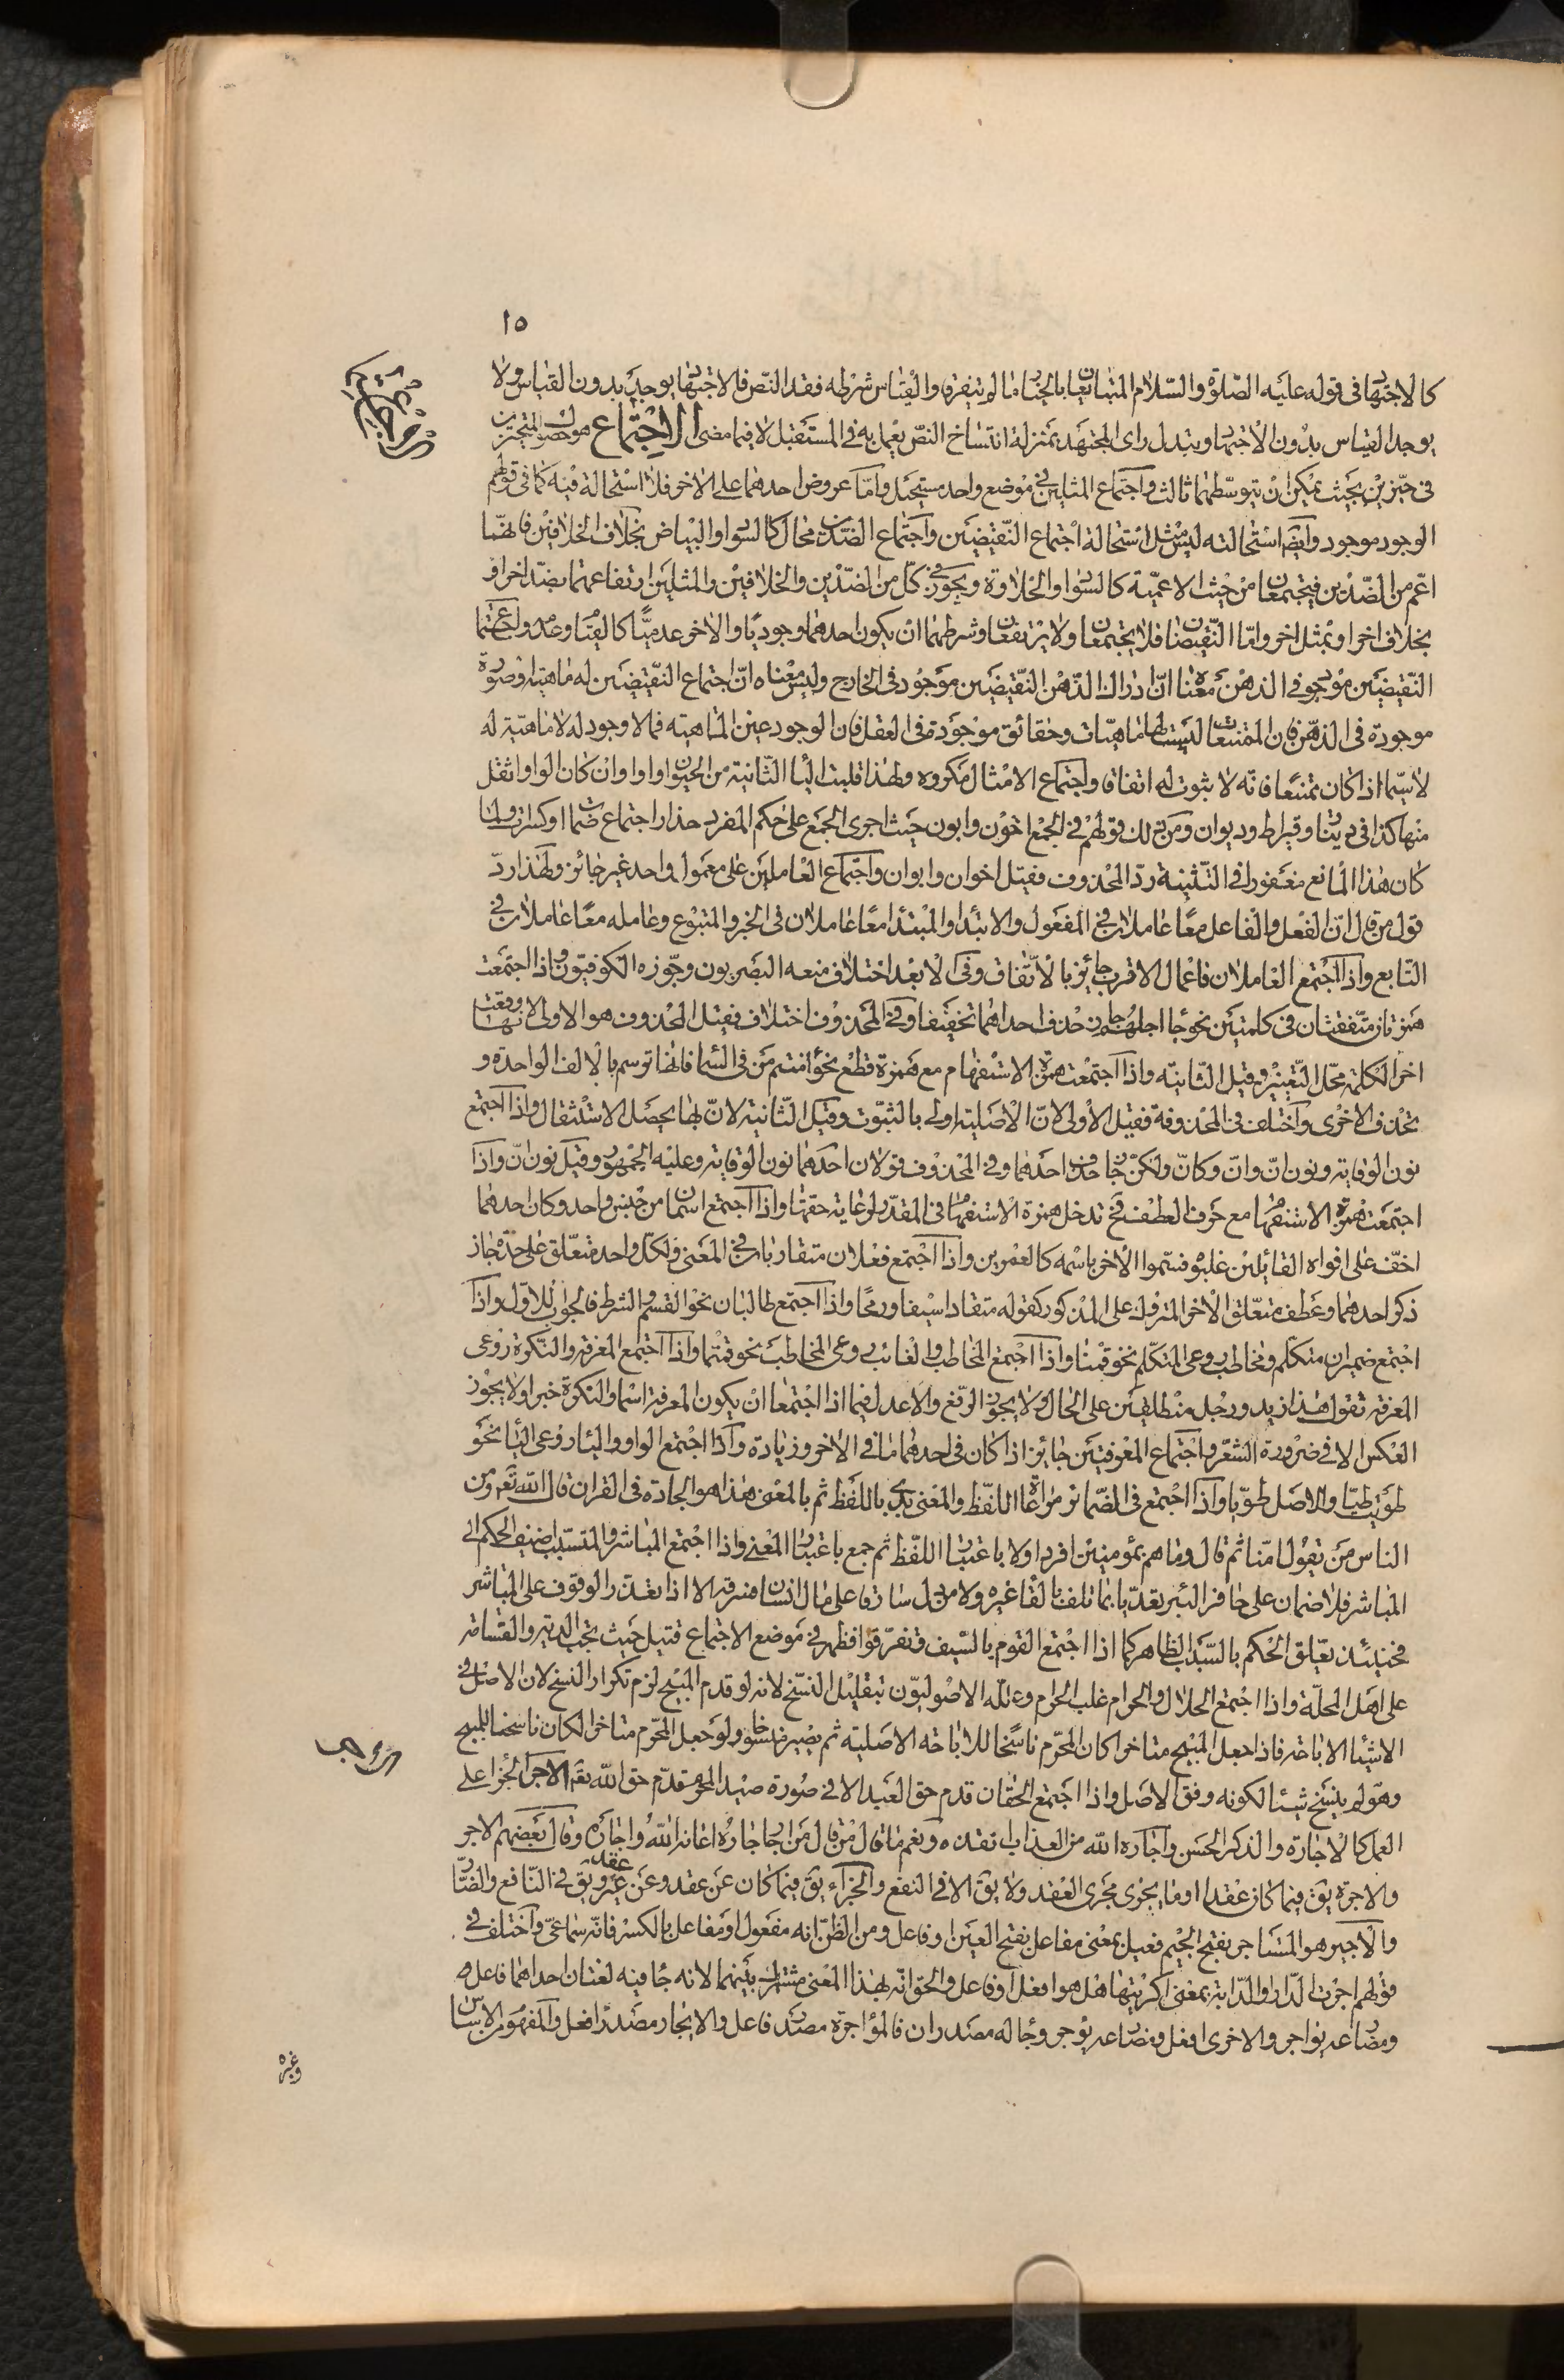 ١٥
كالاجتهاد فى قوله عليه الصلوة والسلام المتبايعان بالخيار ما لم يتفرقا والقياس شرطه فقد النص فالاجتهاد يوجد بدون القياس ولا
يوجد القياس بدون الاجتهاد وتبدل راى المجتهد بمنزلة انتساخ النص يعمل به فى المستقبل لا فيما مضى الاجتماع هو حصول المتحيزين
فى حيزين بحيث يمكن ان يتوسطهما ثالث واجتماع المثلين فى موضع واحد مستحيل واما عروض احدهما على الاخر فلا استحالة فيه كما فى قولهم
الوجود موجود وايضا استحالته ليس مثل استحالة اجتماع النقيضين واجتماع الضدين محال كالسواد والبياض بخلاف الخلافين فانهما
اعم من الضدين فيجتمعان من حيث الاعمية كالسواد والحلاوة ويجوز فى كل من الضدين والخلافين والمثلين ارتفاعهما بضد اخر او
بخلاف اخر او بمثل اخر واما النقيضان فلا يجتمعان ولا يرتفعان وشرطهما ان يكون احدهما وجوديا والاخر عدميا كالقيام وعدمه واجتماع
النقيضين موجود فى الذهن معناه ان ادراك الذهن النقيضين موجود فى الخارج وليس معناه ان اجتماع النقيضين له ماهية وصورة
موجودة فى الذهن فان الممتنعات ليست لها ماهيات وحقائق موجودة فى العقل فان الوجود عين الماهية فما لا وجود له لا ماهية له
لا سيما اذا كان ممتنعا فانه لا ثبوت له اتفاقا واجتماع الامثال مكروه ولهذا قلبت الياء الثانية من الحيوان واوا وان كان الواو اثقل
منها كذا فى دينار وقيراط وديوان ومن ذلك قولهم فى الجمع اخون وابون حيث اجرى الجمع على حكم المفرد حذار اجتماع ضمات او كسرات ولما
كان هذا المانع مفقودا فى التثنية رد المحذوف فقيل اخوان وابوان واجتماع العاملين على معمول واحد غير جائز ولهذا رد
قول من قال ان الفعل والفاعل معا عاملان فى المفعول والابتداء والمبتدأ معا عاملان فى الخبر والمتبوع وعامله معا عاملان فى
التابع واذا اجتمع العاملان فاعمال الاقرب جائز بالاتفاق وفى الابعد اختلاف منعه البصريون وجوزه الكوفيون واذا اجتمعت
همزتان متفقتان فى كلمتين نحو جا اجلهم جاز حذف احداهما تخفيفا وفى المحذوف اختلاف فقيل المحذوف هو الاولى لانها وقعت
اخر الكلمة محل التغيير وقيل الثانية واذا اجتمعت همزة الاستفهام مع همزة قطع نحو أامنتم من فى السماء فانها ترسم بالالف الواحدة و
تحذف الاخرى واختلف فى المحذوفة فقيل الاولى لان الاصلية اولى بالثبوت وقيل الثانية لان لها يحصل الاستثقال واذا اجتمع
نون الوقاية ونون ان وان وكان ولكن جاز حذف احدهما وفى المحذوف قولان احدهما نون الوقاية وعليه الجمهور وقيل نون ان واذا
اجتمعت همزة الاستفهام مع حرف العطف فح تدخل همزة الاستفهام فى المقدر لرعاية حقهما واذا اجتمع اسمان من جنس واحد وكان احدهما
اخف على افواه القائلين غلبوه فسموا الاخر باسمه كالعمرين واذا اجتمع فعلان متقاربان فى المعنى ولكل واحد متعلق على حدة جاز
ذكر احدهما وعطف متعلق الاخر المتروك على المذكور كقوله متقلدا سيفا ورمحا واذا اجتمع طالبان نحو القسم والشرط فالجواب للاول واذا
اجتمع ضميران متكلم ومخاطب روعى المتكلم نحو قمنا واذا اجتمع المخاطب والغائب روعى المخاطب نحو قمتما واذا اجتمع المعرفة والنكرة روعى
المعرفة تقول هذا زيد ورجل منطلقين على الحال ولا يجوز الرفع والاعدل فيما اذا اجتمعا ان يكون المعرفة اسما والنكرة خبرا ولا يجوز
العكس الا فى ضرورة الشعر واجتماع المعرفتين جائز اذا كان فى احدهما ما فى الاخر وزيادة واذا اجتمع الواو والياء روعى الياء نحو
طويت طيا والاصل طويا واذا اجتمع فى الضمائر مراعاة اللفظ والمعنى بدئ باللفظ ثم بالمعنى هذا هو الجادة فى القران قال الله تع ومن
الناس من يقول امنا ثم قال وما هم بمؤمنين افرد اولا باعتبار اللفظ ثم جمع باعتبار المعنى واذا اجتمع المباشر والمتسبب اضيف الحكم الى
المباشر فلا ضمان على حافر البئر تعديا بما تلف بالقاء غيره ولا من دل سارقا على مال انسان فسرقه الا اذا تعذر الوقوف على المباشر
فحينئذ تعلق الحكم بالسبب الظاهر كما اذا اجتمع القوم بالسيف فتفرقوا فظهر فى موضع الاجتماع قتيل حيث تجب الدية والقسامة
على اهل المحلة واذا اجتمع الحلال والحرام غلب الحرام وعلله الاصوليون بتقليل النسخ لانه لو قدم المبيح لزم تكرار النسخ لان الاصل فى
الاشياء الاباحة فاذا جعل المبيح متاخرا كان المحرم ناسخا للاباحة الاصلية ثم يصير منسوخا ولو جعل المحرم متاخرا لكان ناسخا للمبيح
وهو لم ينسخ شيئا لكونه وفق الاصل واذا اجتمع الحقان قدم حق العبد الا فى صورة صيد المحرم قدم حق الله تع الاجر الجزاء على
العمل كالاجارة والذكر الحسن واجاره الله من العذاب انقذه ونعم ما قال من قال من اجار جاره اعانه الله واجاره وقال بعضهم الاجر
والاجرة يق فيما كان عقدا او ما يجرى مجرى العقد ولا يق الا فى النفع والجزاء يق فيما كان عن عقد وعن غير عقد ويق فى النافع والضار
والاجير هو المستاجر بفتح الجيم فعيل بمعنى مفاعل بفتح العين او فاعل ومن الظن انه مفعول او مفاعل بالكسر فانه سماعى واختلف فى
قولهم اجرت الدار والدابة بمعنى اكريتها هل هو افعل او فاعل والحق انه بهذا المعنى مشترك بينهما لانه جا فيه لغتان احداهما فاعل
ومضارعه يؤاجر والاخرى افعل ومضارعه يؤجر وجا له مصدران فالمؤاجرة مصدر فاعل والايجار مصدر افعل والمفهوم من الاساس
وغيره